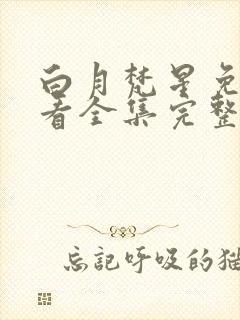 白月梵星免
看全集完整
忘記呼吸的猫